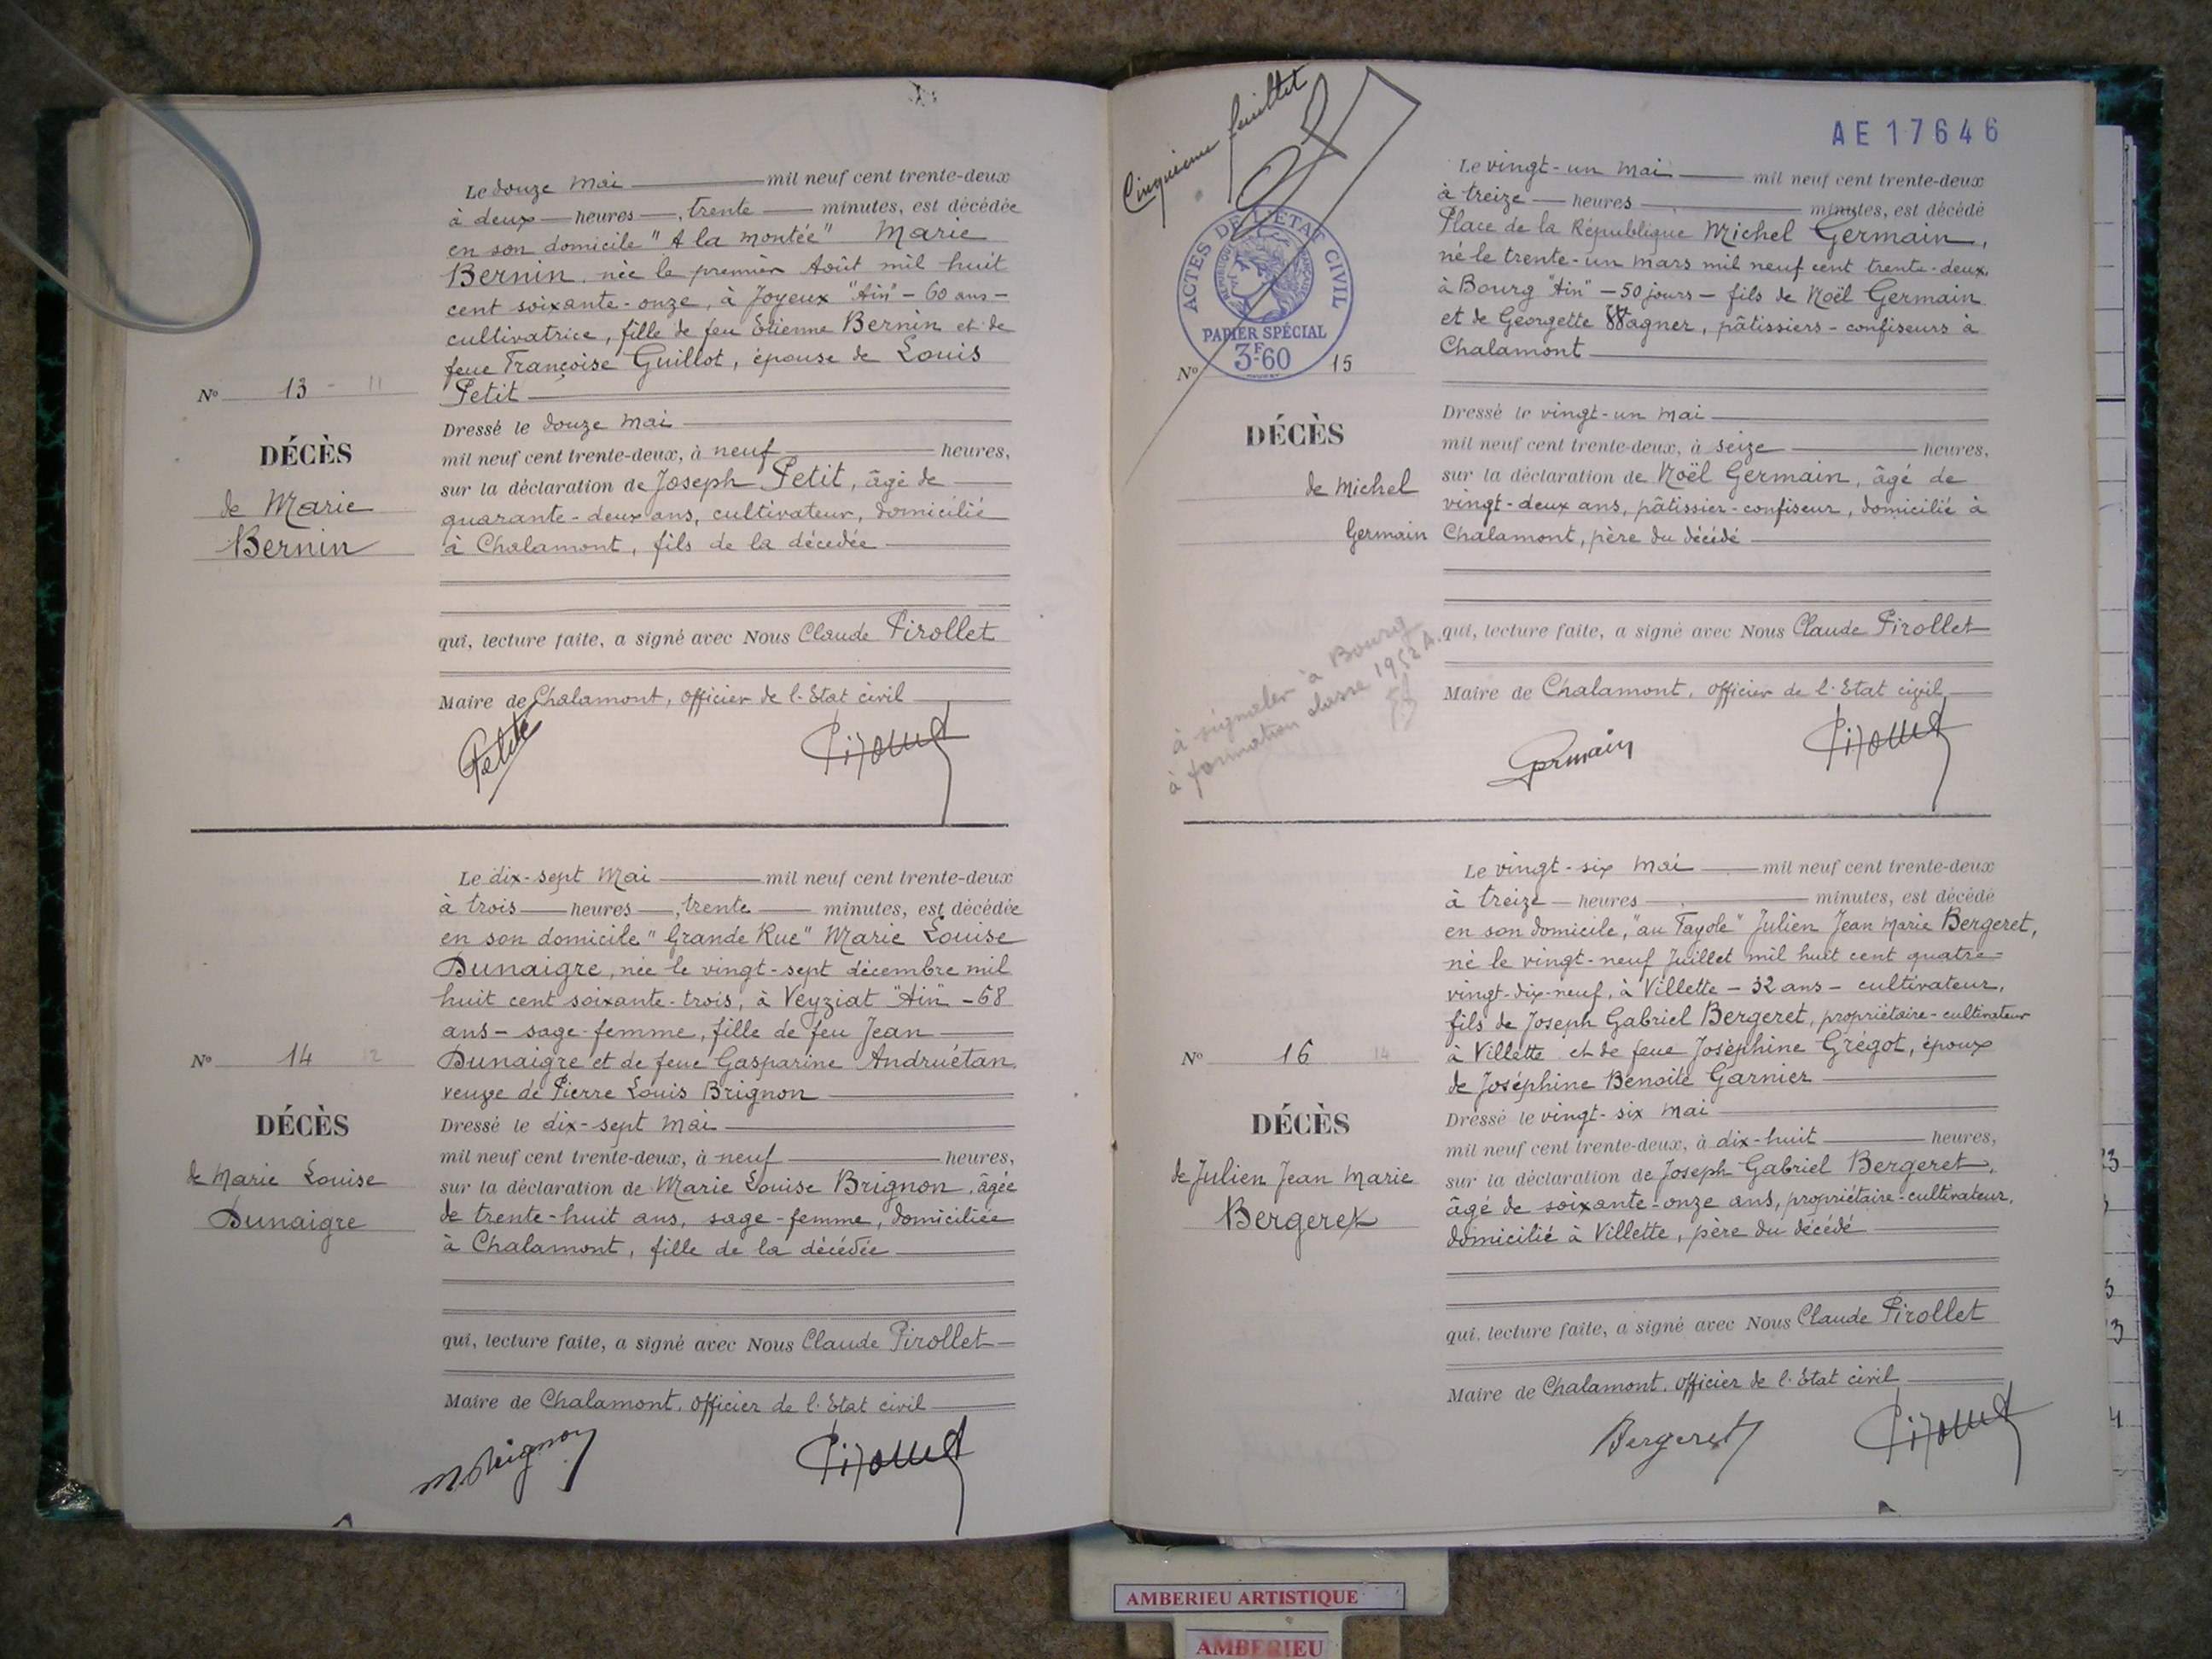 Le douze Mai mil neuf cent trente-deux
à deux heures, trente minutes, est décédée
en son domicile "A la montée" Marie
Bernin, née le premier Août mil huit
cent soixante-onze, à Joyeux "Ain" - 60 ans -
cultivatrice, fille de feu Etienne Bernin et de
feue Françoise Guillot, épouse de Louis
Petit
Nº 13 - 11
DÉCÈS
de Marie
Bernin
Dressé le douze Mai
mil neuf cent trente-deux, à neuf heures,
sur la déclaration de Joseph Petit, âgé de
quarante-deux ans, cultivateur, domicilié
à Chalamont, fils de la décédée
qui, lecture faite, a signé avec Nous Claude Pirollet
Maire de Chalamont, officier de l'Etat civil
Petit Pirollet
Le dix-sept Mai mil neuf cent trente-deux
à trois heures, trente minutes, est décédée
en son domicile "Grande Rue" Marie Louise
Dunaigre, née le vingt-sept décembre mil
huit cent soixante-trois, à Veyziat "Ain" - 68
ans - sage-femme, fille de feu Jean
Dunaigre et de feue Gasparine Andruétan,
veuve de Pierre Louis Brignon
Nº 14 12
DÉCÈS
de Marie Louise
Dunaigre
Dressé le dix-sept Mai
mil neuf cent trente-deux, à neuf heures,
sur la déclaration de Marie Louise Brignon, âgée
de trente-huit ans, sage-femme, domiciliée
à Chalamont, fille de la décédée
qui, lecture faite, a signé avec Nous Claude Pirollet
Maire de Chalamont, officier de l'Etat civil
M. Brignon Pirollet
Cinquième feuillet
AE 17646
ACTES DE L'ETAT CIVIL
REPUBLIQUE FRANÇAISE
PAPIER SPÉCIAL
3F60
Le vingt-un Mai mil neuf cent trente-deux
à treize heures minutes, est décédé
Place de la République Michel Germain,
né le trente-un mars mil neuf cent trente-deux,
à Bourg "Ain" - 50 jours - fils de Noël Germain
et de Georgette Wagner, pâtissiers-confiseurs à
Chalamont
Nº 15
DÉCÈS
de Michel
Germain
Dressé le vingt-un Mai
mil neuf cent trente-deux, à seize heures,
sur la déclaration de Noël Germain, âgé de
vingt-deux ans, pâtissier-confiseur, domicilié à
Chalamont, père du décédé
à signaler à Bourg
à formation classe 1952 A.
53
qui, lecture faite, a signé avec Nous Claude Pirollet
Maire de Chalamont, officier de l'Etat civil
Germain Pirollet
Le vingt-six Mai mil neuf cent trente-deux
à treize heures minutes, est décédé
en son domicile, "au Fayole" Julien Jean Marie Bergeret,
né le vingt-neuf Juillet mil huit cent quatre-
vingt-dix-neuf, à Villette - 32 ans - cultivateur,
fils de Joseph Gabriel Bergeret, propriétaire-cultivateur
à Villette et de feue Joséphine Grégot, époux
de Joséphine Benoite Garnier
Nº 16 14
DÉCÈS
de Julien Jean Marie
Bergeret
Dressé le vingt-six Mai
mil neuf cent trente-deux, à dix-huit heures,
sur la déclaration de Joseph Gabriel Bergeret,
âgé de soixante-onze ans, propriétaire-cultivateur,
domicilié à Villette, père du décédé
qui, lecture faite, a signé avec Nous Claude Pirollet
Maire de Chalamont, officier de l'Etat civil
Bergeret Pirollet
AMBERIEU ARTISTIQUE
AMBERIEU